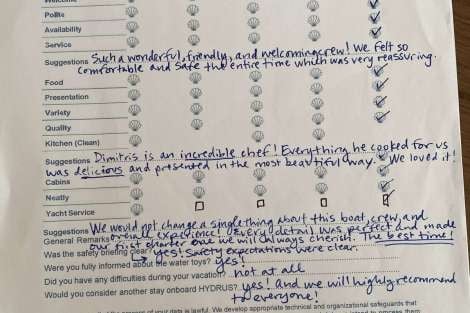 Welcome
Polite
Availability
Service
Suggestions Such a wonderful, friendly, and welcoming crew! We felt so
comfortable and safe the entire time which was very reassuring.
Food
Presentation
Variety
Quality
Kitchen (Clean)
Suggestions Dimitris is an incredible chef! Everything he cooked for us
was delicious and presented in the most beautiful way. We loved it!
Cabins
Neatly
Yacht Service
Suggestions We would not change a single thing about this boat, crew, and
General Remarks overall experience! Every detail was perfect and made
our first charter one we will always cherish. The best time!
Was the safety briefing clear? yes! Safety expectations were clear.
Were you fully informed about the water toys? yes!
Did you have any difficulties during your vacation? not at all
Would you consider another stay onboard HYDRUS? yes! And we will highly recommend
to everyone!
of your data is lawful. We develop appropriate technical and organizational safeguards that